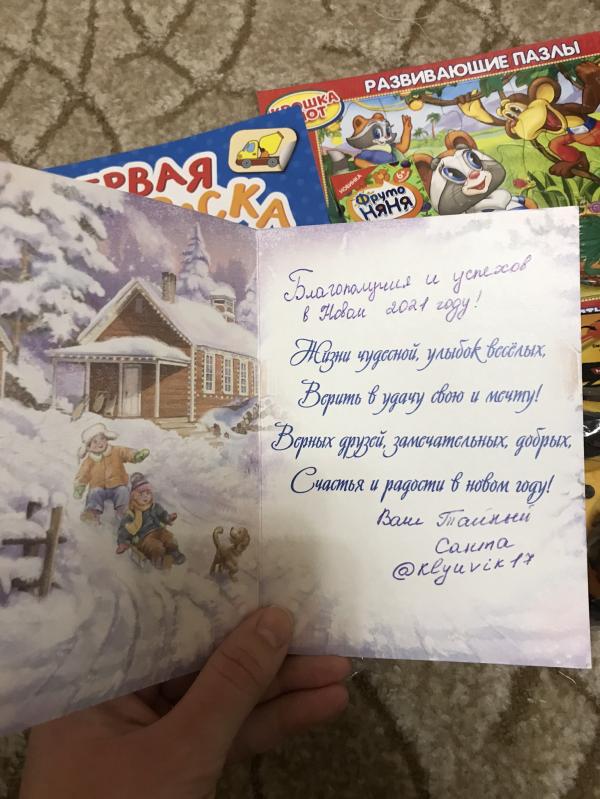 РАЗВИВАЮЩИЕ ПАЗЛЫ
КРОШКА
НОВИНКА
6+
Фруто
НЯНЯ
Благополучия и успехов
в Новом 2021 году!
Жизни чудесной, улыбок весёлых,
Верить в удачу свою и мечту!
Верных друзей, замечательных, добрых,
Счастья и радости в новом году!
Ваш Тайный
Санта
@klyuvik17